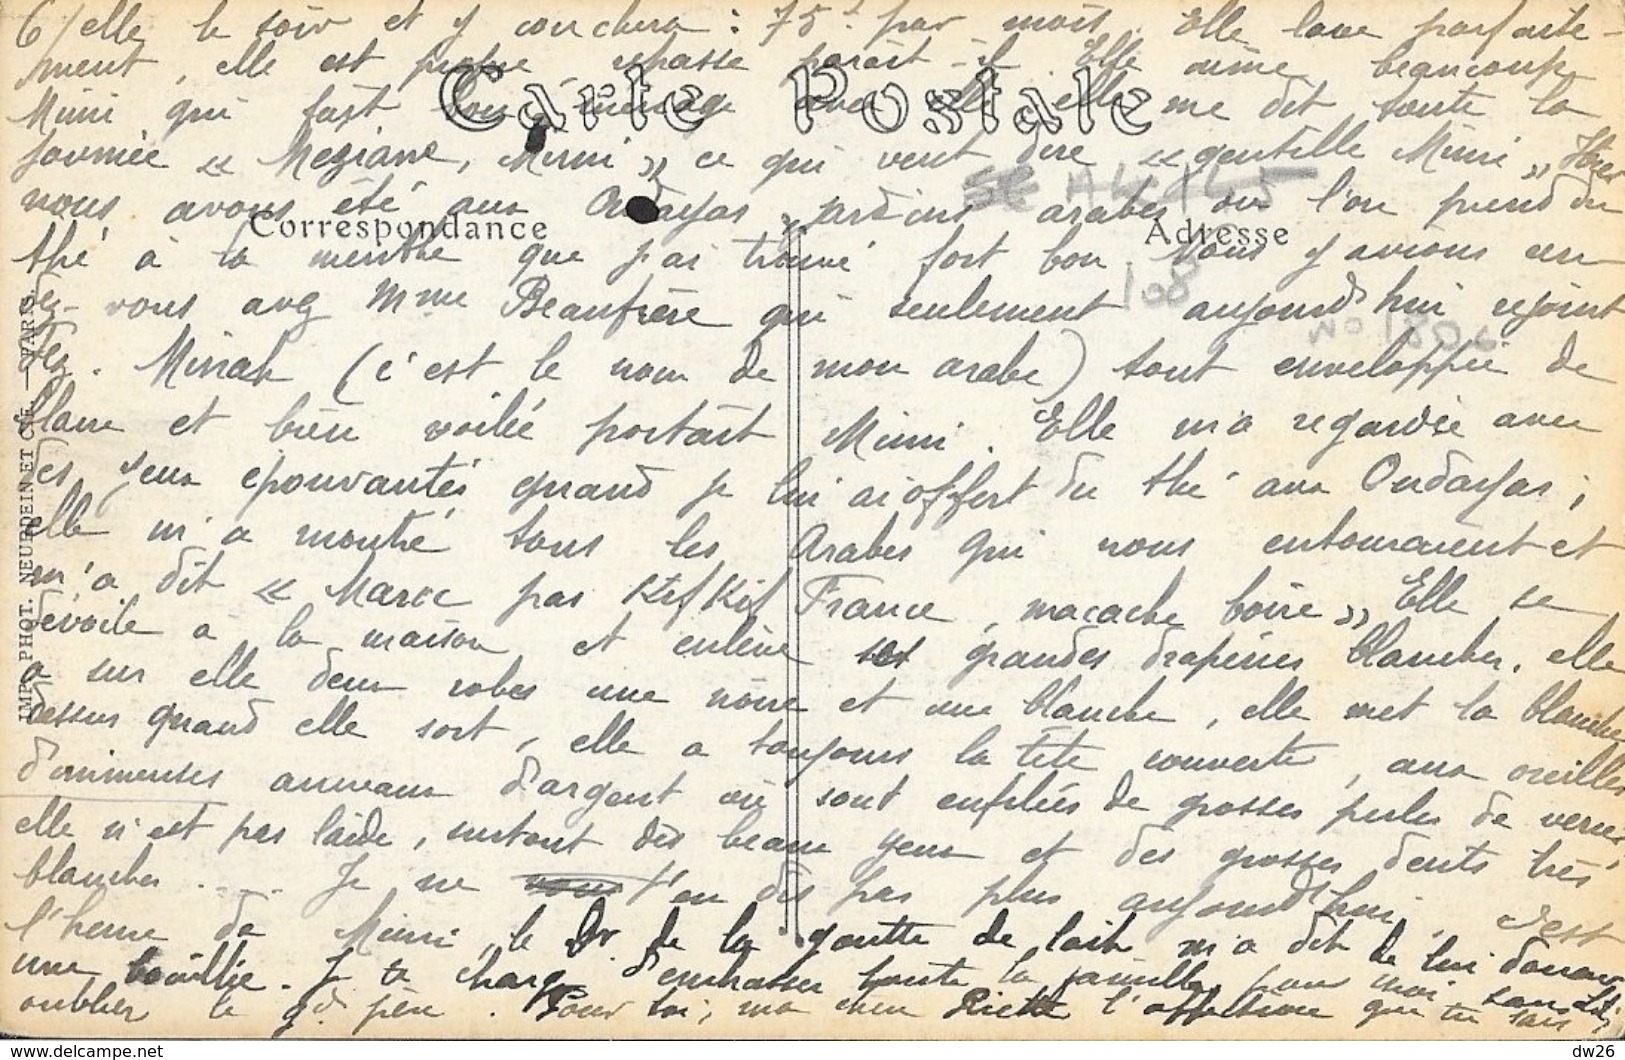 6/ elle le soir et y couchera : 75f par mois. Elle lave parfaite-
ment, elle est propre, repasse paraît-il. Elle aime beaucoup
Mimi qui fait bon ménage avec elle, elle me dit toute la
journée « Meziane, Mimi » ce qui veut dire « gentille Mimi » Hier
nous avons été aux Oudayas, jardins arabes où l'on prend du
thé à la menthe que j'ai trouvé fort bon. Nous y avions un
rendez-vous avec Mme Beaufrère qui seulement aujourd'hui rejoint
Fez. Minah (c'est le nom de mon arabe) tout enveloppée de
blanc et bien voilée portait Mimi. Elle m'a regardée avec
des yeux épouvantés quand je lui ai offert du thé aux Oudayas ;
elle m'a montré tous les Arabes qui nous entouraient et
m'a dit « Maroc pas Kif Kif France, macache boire » Elle se
dévoile à la maison et enlève ses grandes draperies blanches, elle
a sur elle deux robes une noire et une blanche, elle met la blanche
dessus quand elle sort, elle a toujours la tête couverte, aux oreilles
d'immenses anneaux d'argent où sont enfilées de grosses perles de verre
elle n'est pas laide, surtout des beaux yeux et des grosses dents très
blanches ..... Je ne t'en dis pas plus aujourd'hui. C'est
l'heure de Mimi, le Dr. de la goutte de lait m'a dit de lui donner
une bouillie. Je te charge d'embrasser toute la famille pour moi sans
oublier le gd père. Pour toi, ma chère l'affection que tu sais
Carte Postale
Correspondance
Adresse
IMP. PHOT. NEURDEIN ET CIE. — PARIS.
delcampe.net
dw26